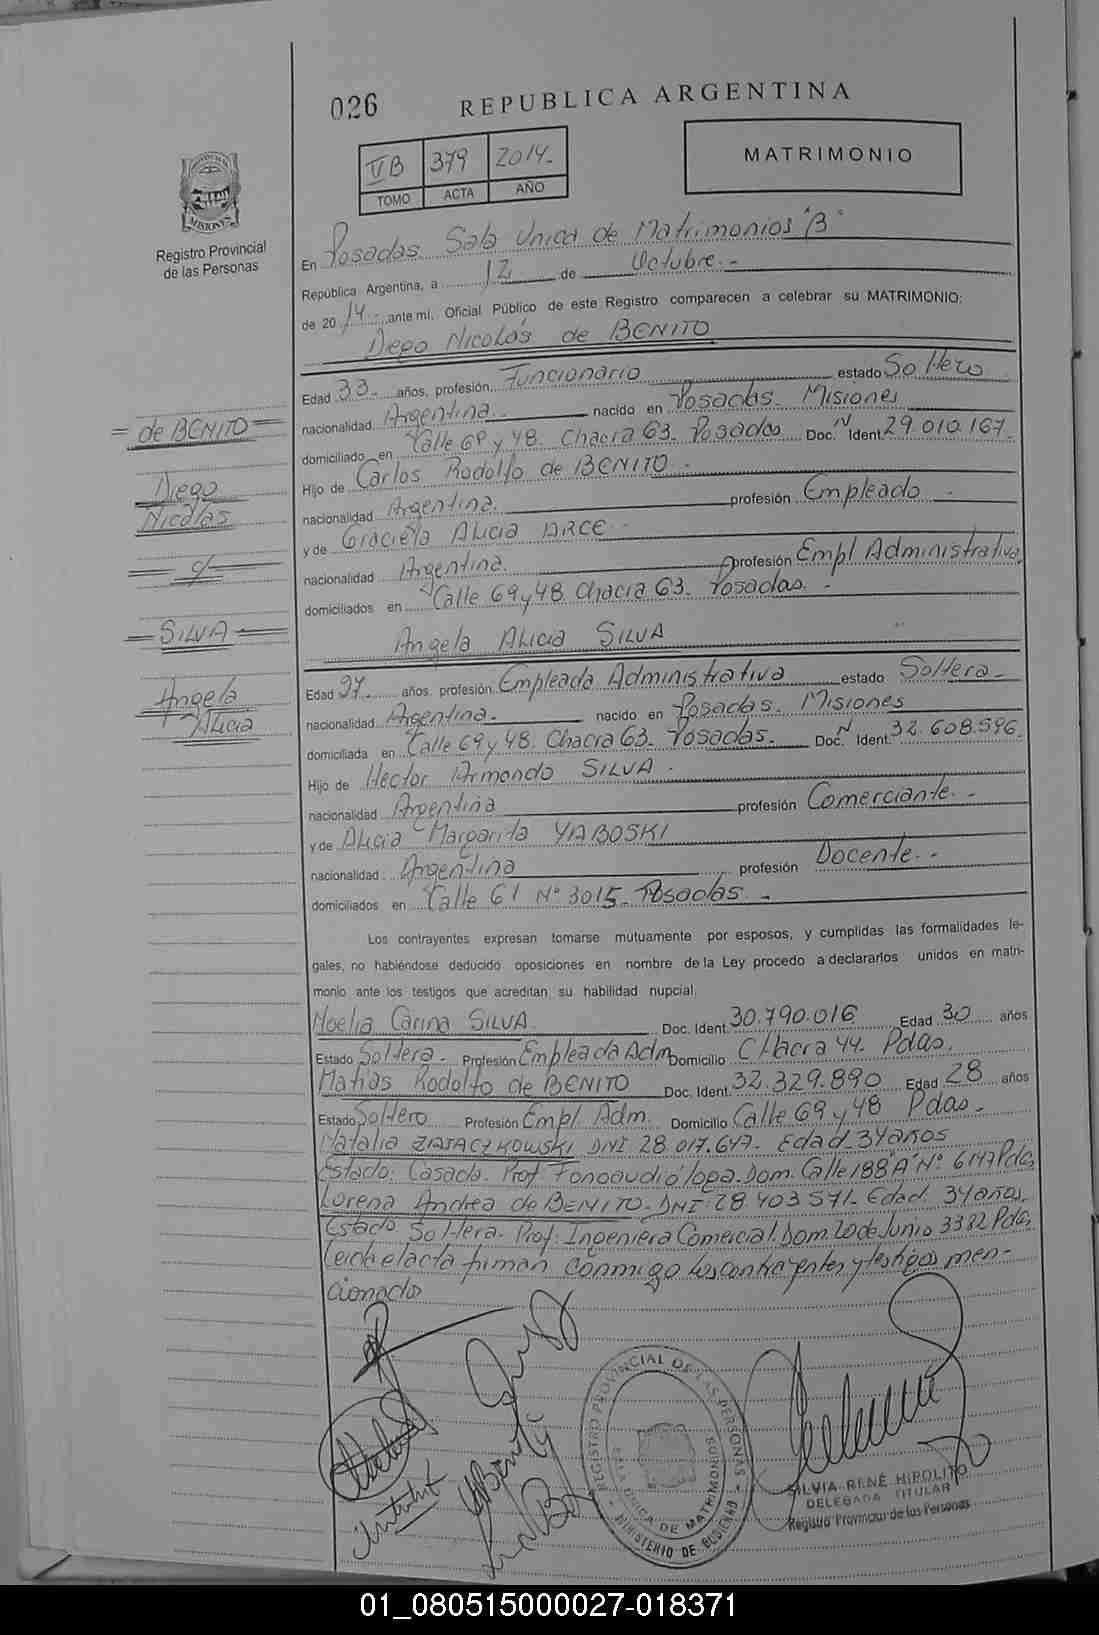 026 REPUBLICA ARGENTINA
VB 379 2014.-
TOMO ACTA AÑO
MATRIMONIO
MISIONES
Registro Provincial
de las Personas
En Posadas. Sala Unica de Matrimonios "B"
República Argentina, a 12 de Octubre.-
de 2014.- ante mí, Oficial Público de este Registro comparecen a celebrar su MATRIMONIO:
Diego Nicolás de BENITO
Edad 33 años, profesión Funcionario estado Soltero
nacionalidad Argentina. nacido en Posadas. Misiones
domiciliado en Calle 69 y 48. Chacra 63. Posadas Doc. N Ident. 29.010.167.
Hijo de Carlos Rodolfo de BENITO.-
nacionalidad Argentina. profesión Empleado.-
y de Graciela Alicia ARCE.-
nacionalidad Argentina. profesión Empl Administrativa
domiciliados en Calle 69 y 48. Chacra 63. Posadas.-
Angela Alicia SILVA
Edad 27 años, profesión Empleada Administrativa estado Soltera.-
nacionalidad Argentina.- nacido en Posadas. Misiones
domiciliada en Calle 69 y 48. Chacra 63. Posadas.- Doc. N Ident. 32.608.596.
Hijo de Hector Armando SILVA.
nacionalidad Argentina profesión Comerciante.-
y de Alicia Margarita YABOSKI
nacionalidad Argentina profesión Docente.-
domiciliados en Calle 61 Nº 3015. Posadas.-
= de BENITO =
Diego
Nicolás
= c/ =
= SILVA =
Angela
Alicia
Los contrayentes expresan tomarse mutuamente por esposos, y cumplidas las formalidades le-
gales, no habiéndose deducido oposiciones en nombre de la Ley procedo a declararlos unidos en matri-
monio ante los testigos que acreditan su habilidad nupcial.
Noelia Carina SILVA. Doc. Ident. 30.790.016 Edad 30 años
Estado Soltera.- Profesión Empleada Adm Domicilio Chacra 44. Pdas.
Matias Rodolfo de BENITO Doc. Ident. 32.329.890 Edad 28 años
Estado Soltero Profesión Empl. Adm. Domicilio Calle 69 y 48 Pdas.-
Natalia ZATACZKOWSKI DNI 28.017.647. Edad 34 años
Estado: Casada. Prof. Fonoaudióloga. Dom. Calle 188 "A" Nº 6147 Pdas
Lorena Andrea de BENITO. DNI: 28.403.571. Edad. 34 años.
Estado Soltera. Prof: Ingeniera Comercial. Dom. 20 de Junio 3382 Pdas.
Leida el acta firman conmigo los contrayentes y testigos men-
cionados
REGISTRO PROVINCIAL DE LAS PERSONAS
SALA UNICA DE MATRIMONIOS
MINISTERIO DE GOBIERNO
SILVIA RENÉ HIPOLITO
DELEGADA TITULAR
Registro Provincial de las Personas
01_080515000027-018371